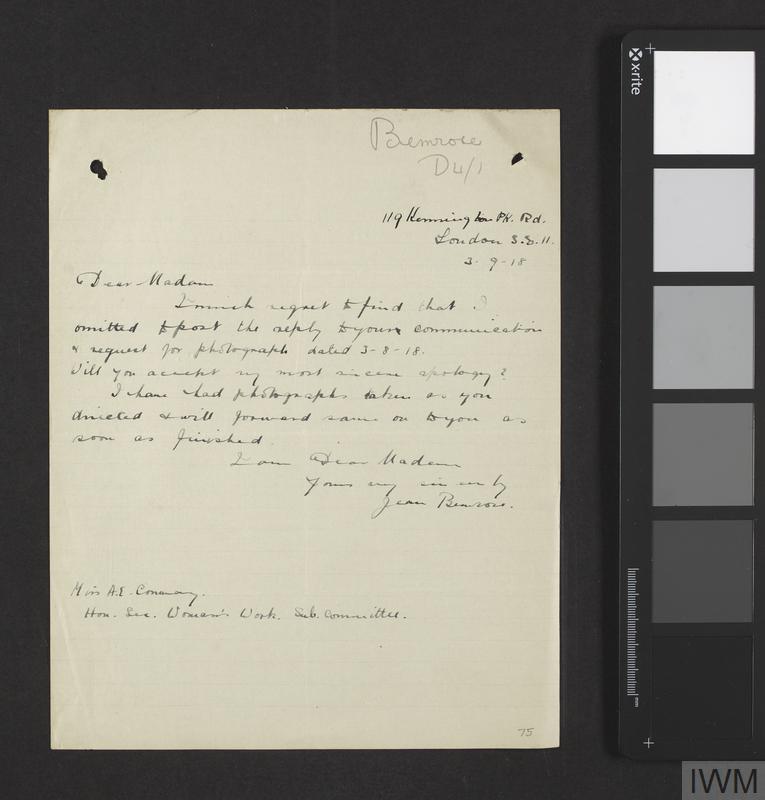 Bemrose
D4/1
119 Kennington Pk. Rd.
London S.E. 11.
3-9-18
Dear Madam
I much regret to find that I
omitted to post the reply to your communication
& request for photograph dated 3-8-18.
Will you accept my most sincere apology?
I have had photographs taken as you
directed & will forward same on to you as
soon as finished.
I am Dear Madam
Yours very sincerely
Jean Bemrose.
Miss A.E. Conway.
Hon. Sec. Women's Work. Sub. Committee.
75
x-rite
mm
IWM